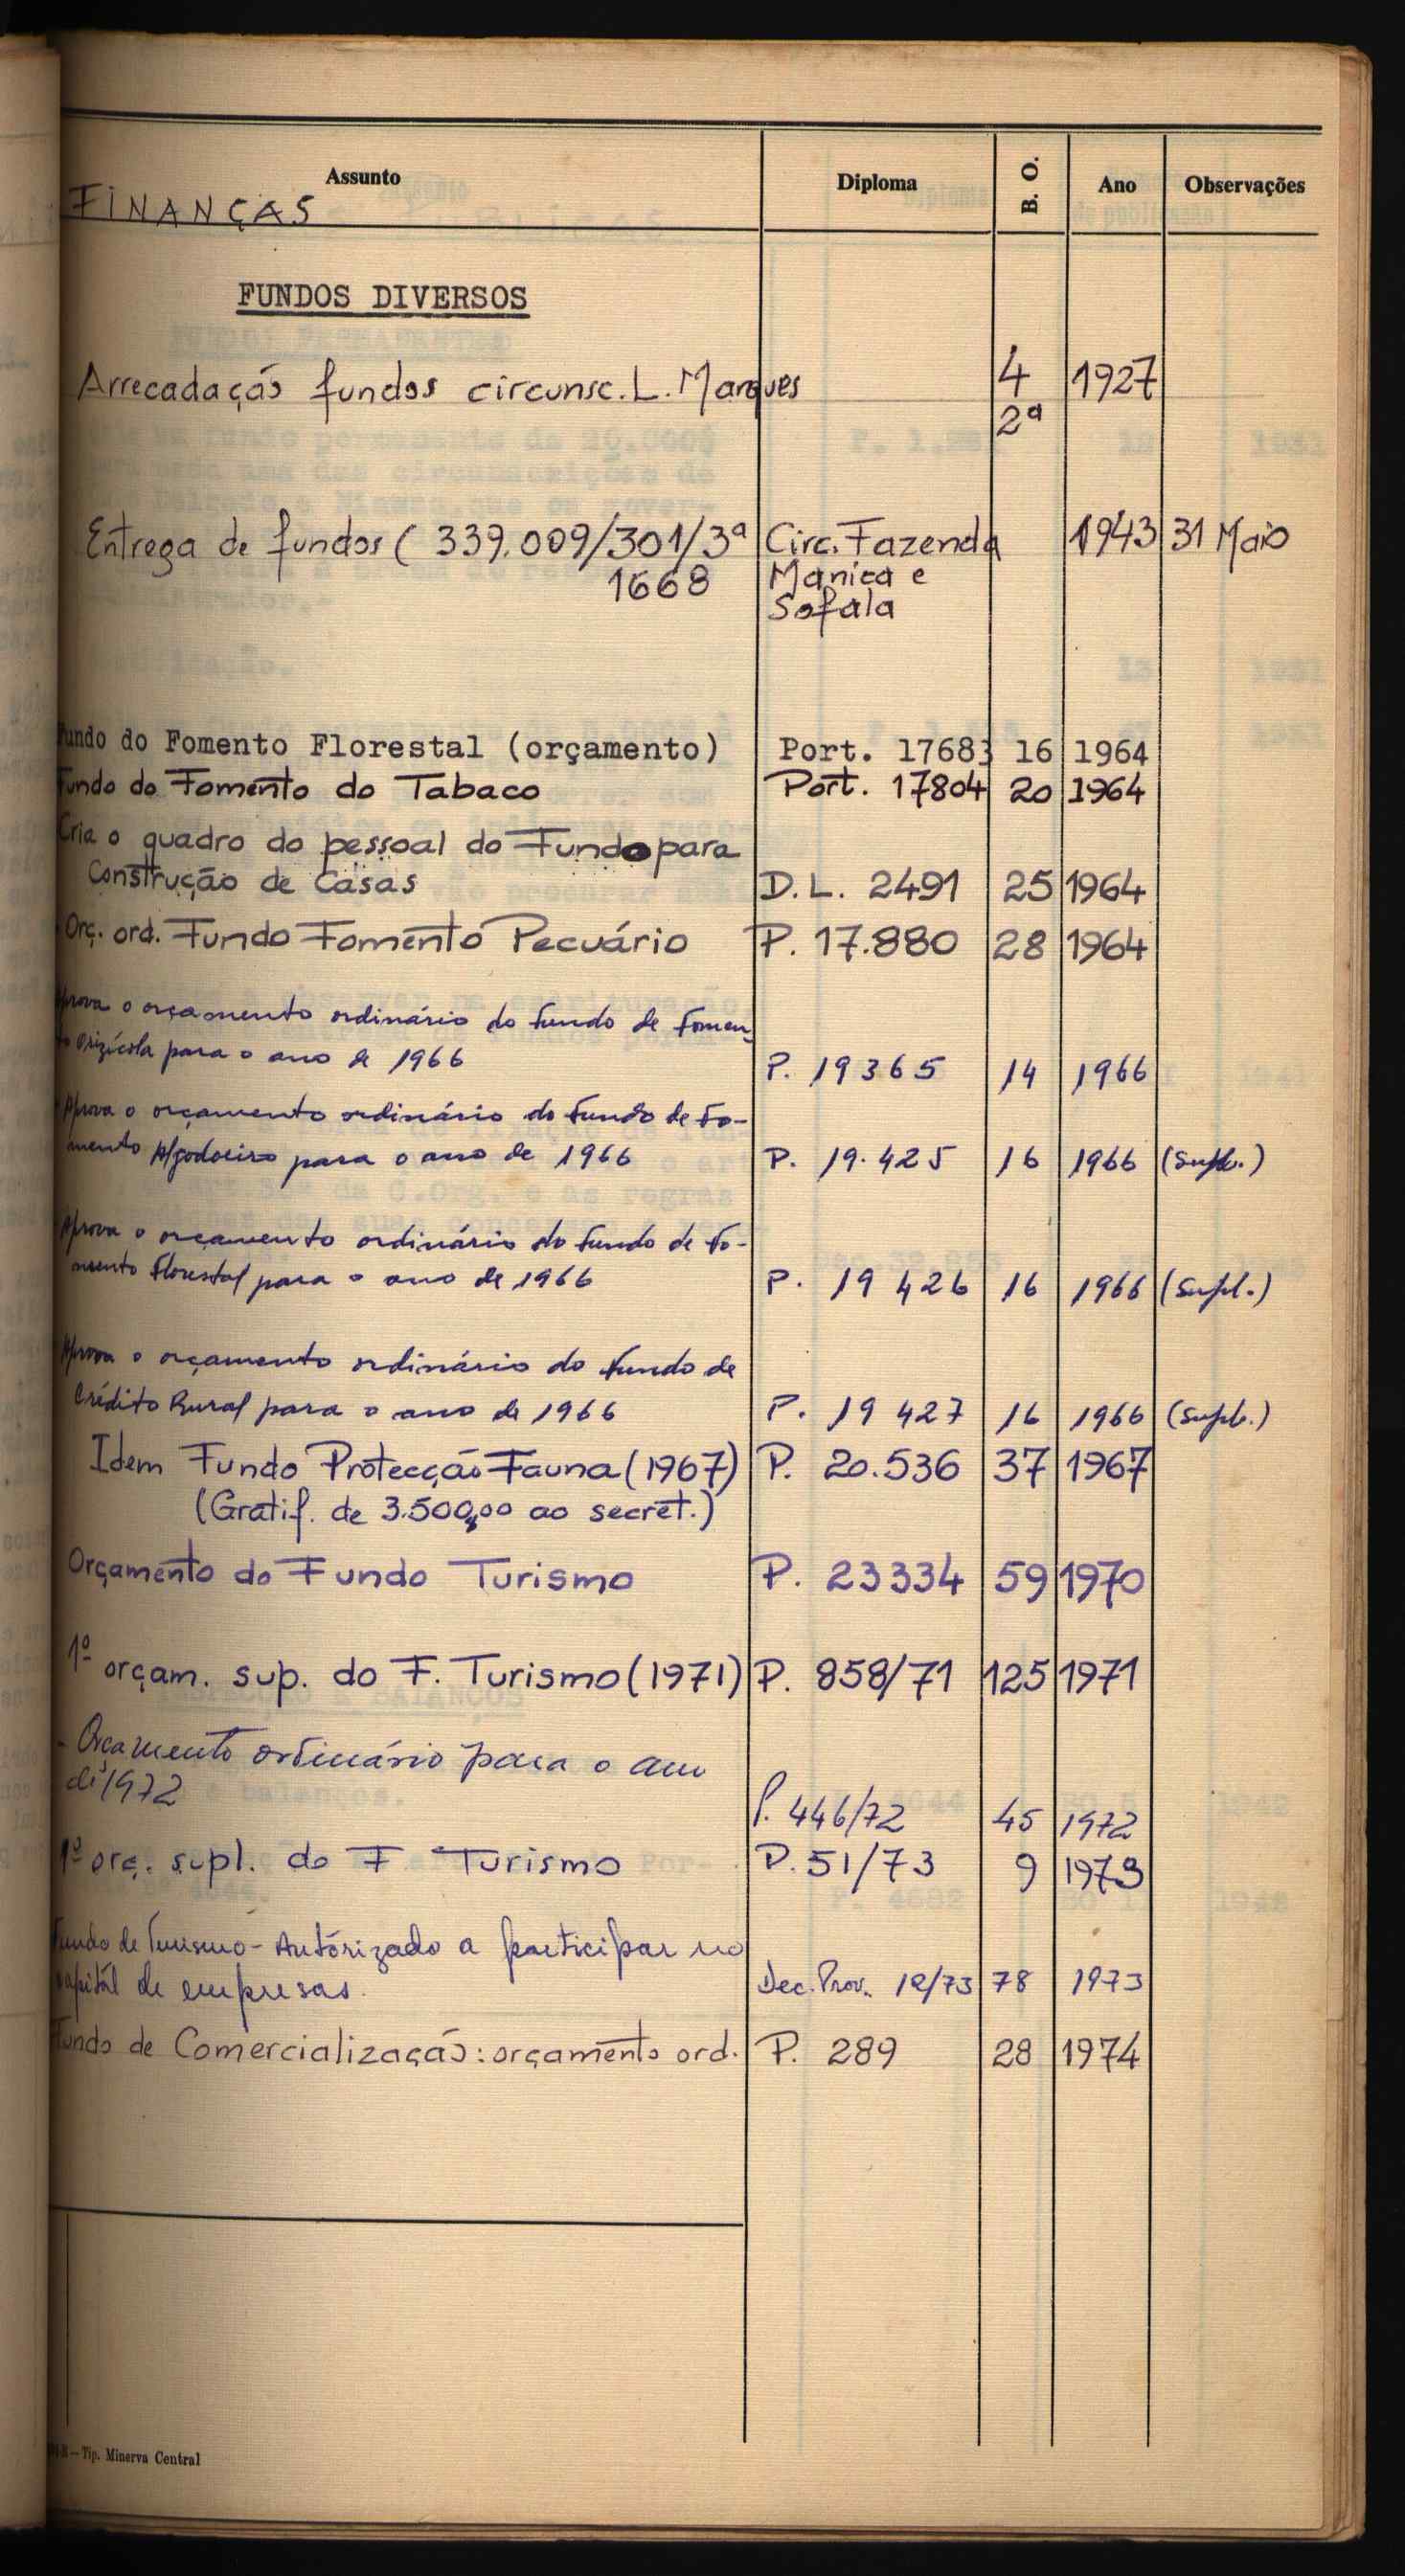 Assunto Diploma B. O. Ano Observações
FINANÇAS
FUNDOS DIVERSOS
Arrecadação fundos circunsc. L. Marques 4 1927
2ª
Entrega de fundos ( 339.009/301/3ª Circ. Fazenda 1943 31 Maio
1668 Manica e
Sofala
Fundo do Fomento Florestal (orçamento) Port. 17683 16 1964
Fundo do Fomento do Tabaco Port. 17804 20 1964
Cria o quadro do pessoal do Fundo para
Construção de Casas D.L. 2491 25 1964
Orç. ord. Fundo Fomento Pecuário P. 17.880 28 1964
Aprova o orçamento ordinário do Fundo de Fomen-
to Orizícola para o ano de 1966 P. 19365 14 1966
Aprova o orçamento ordinário do Fundo de Fo-
mento Algodoeiro para o ano de 1966 P. 19.425 16 1966 (Supl.)
Aprova o orçamento ordinário do Fundo de Fo-
mento Florestal para o ano de 1966 P. 19 426 16 1966 (Supl.)
Aprova o orçamento ordinário do Fundo de
Crédito Rural para o ano de 1966 P. 19 427 16 1966 (Supl.)
Idem Fundo Protecção Fauna (1967) P. 20.536 37 1967
(Gratif. de 3.500$00 ao secret.)
Orçamento do Fundo Turismo P. 23334 59 1970
1º orçam. sup. do F. Turismo (1971) P. 858/71 125 1971
- Orçamento ordinário para o ano
de 1972 P. 446/72 45 1972
1º orç. supl. do F Turismo P. 51/73 9 1973
Fundo de Turismo - Autorizado a participar no
capital de empresas. Dec. Prov. 12/73 78 1973
Fundo de Comercialização: orçamento ord. P. 289 28 1974
Tip. Minerva Central